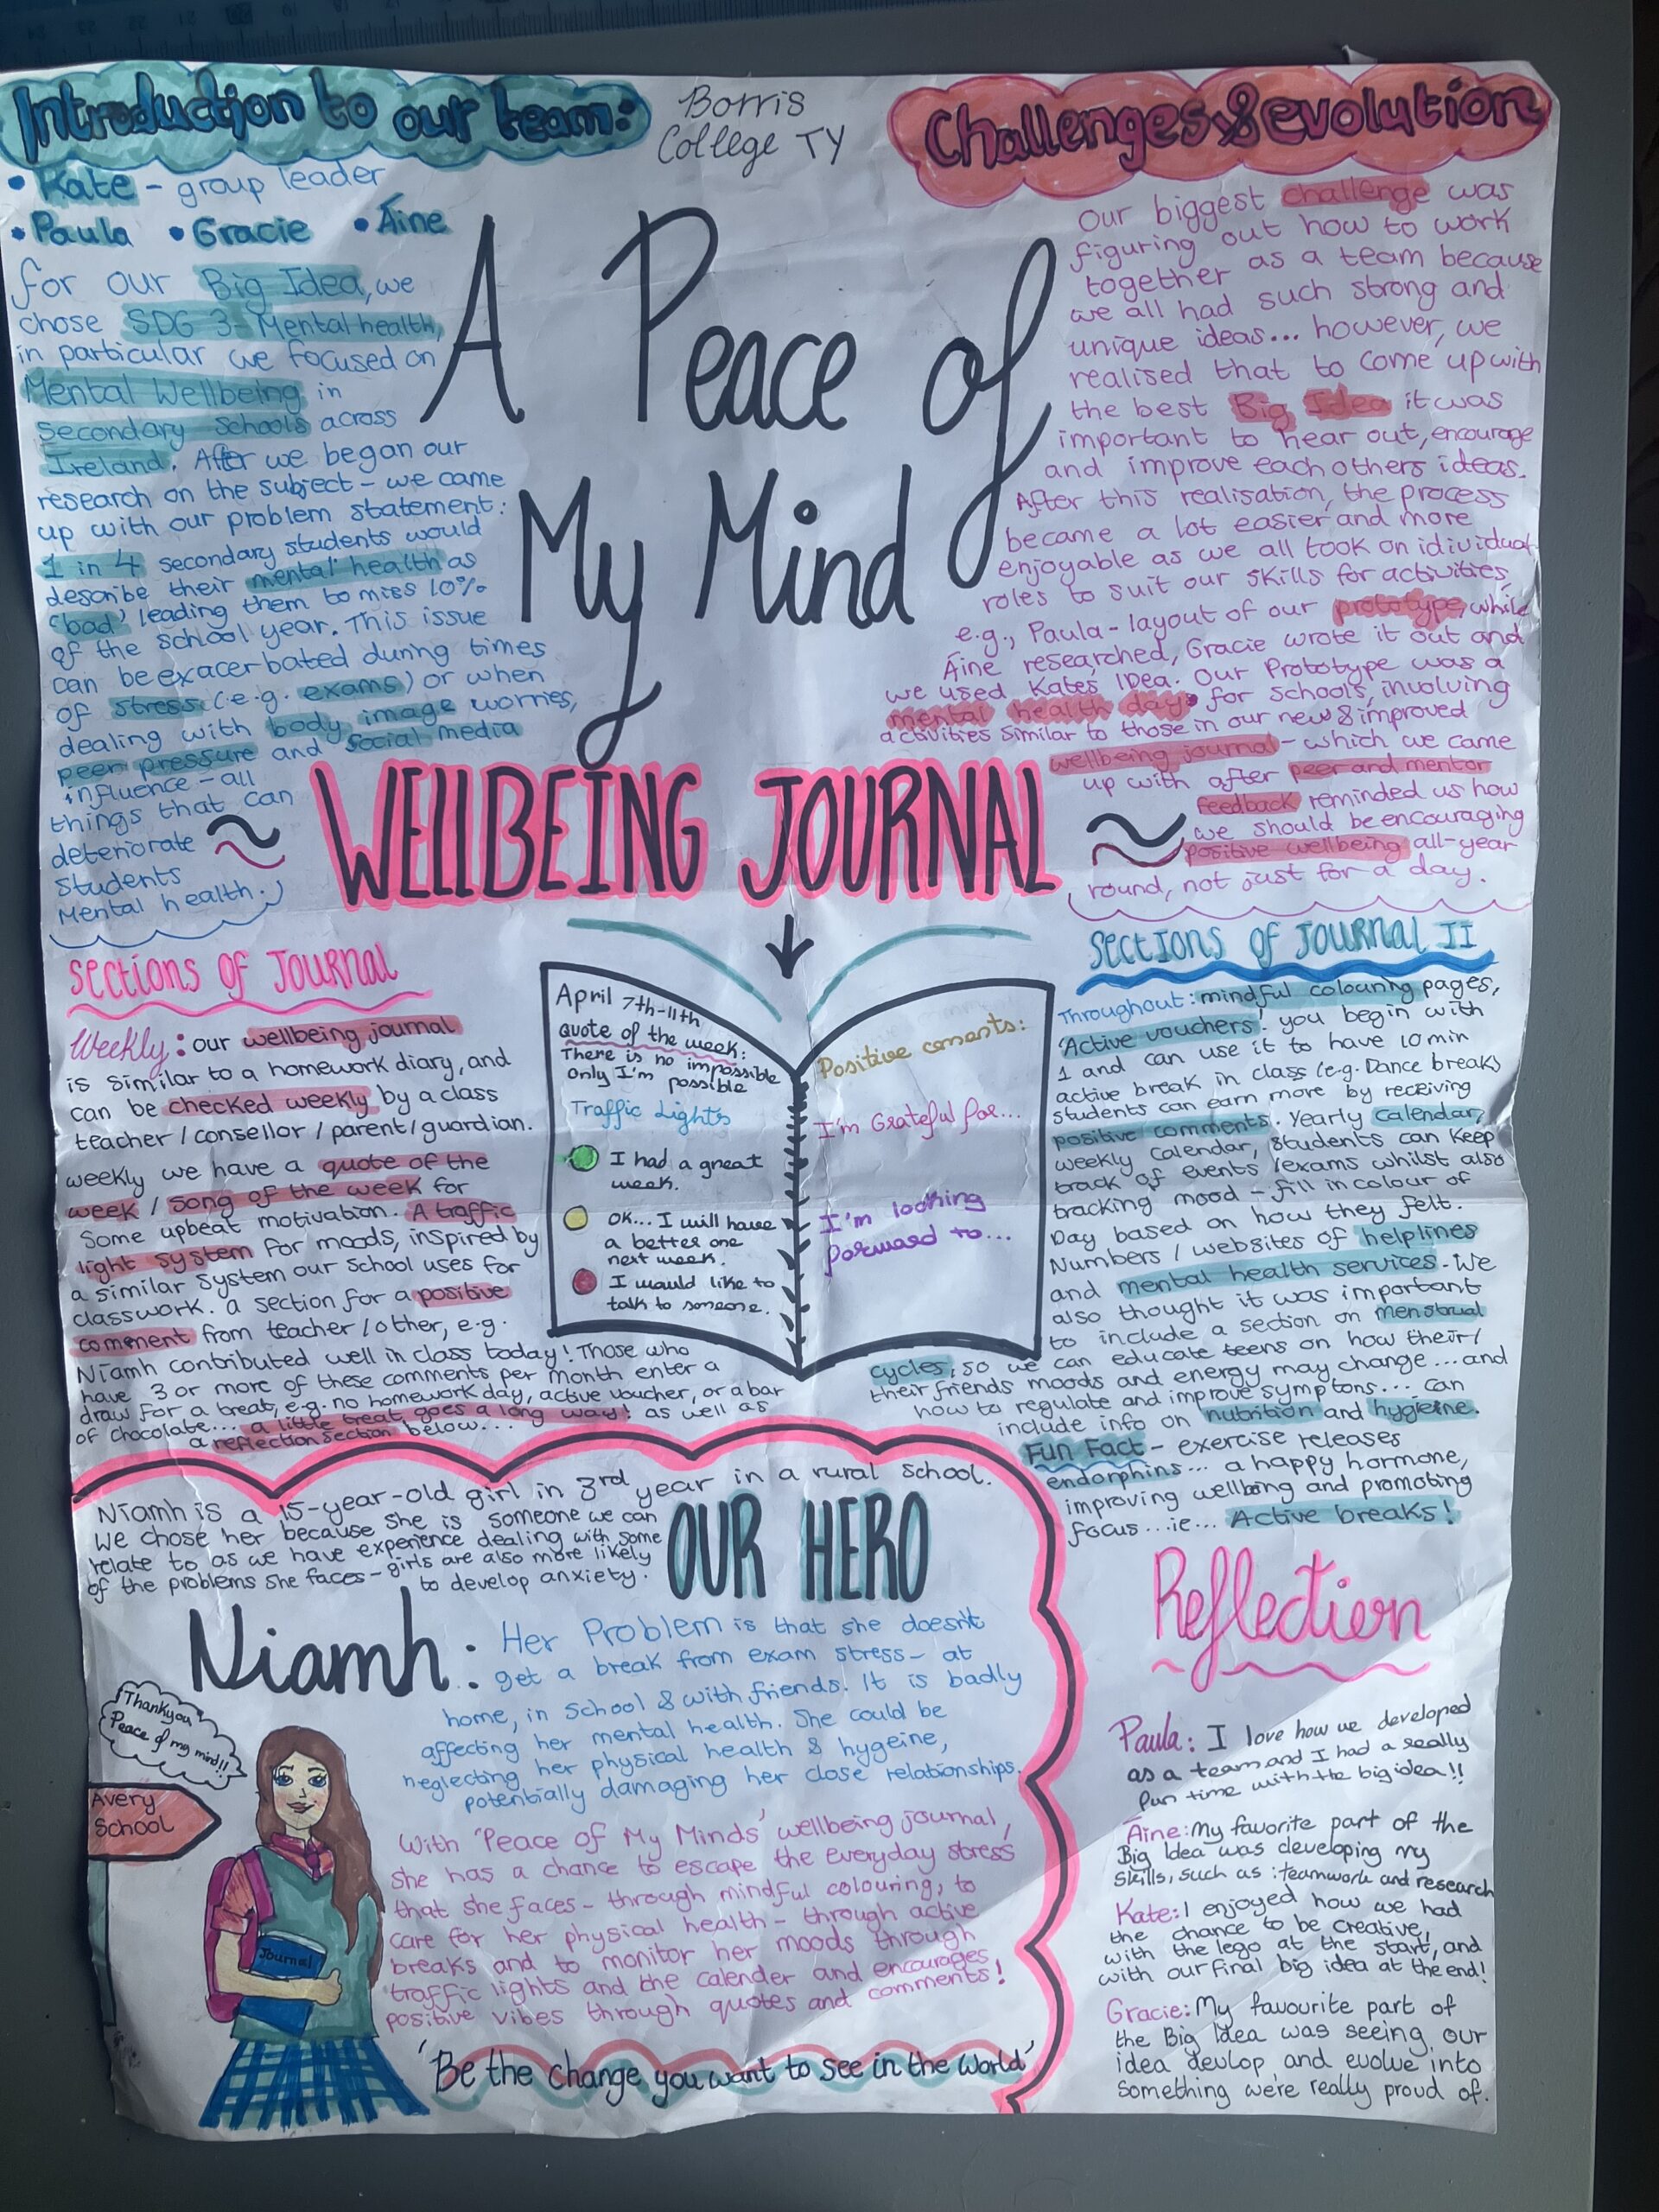 Introduction to our team:
• Kate - group leader
• Paula • Gracie • Áine
for our Big Idea, we
chose SDG 3- Mental health,
in particular we focused on
Mental Wellbeing in
Secondary Schools across
Ireland. After we began our
research on the subject - we came
up with our problem statement:
1 in 4 secondary students would
describe their mental health as
'bad' leading them to miss 10%
of the school year. This issue
can be exacerbated during times
of stress (e.g. exams) or when
dealing with body image worries,
peer pressure and social media
influence - all
things that can
deteriorate
students
Mental health.
Borris
College TY
A Peace of
My Mind
WELLBEING JOURNAL
Challenges & evolution
Our biggest challenge was
figuring out how to work
together as a team because
we all had such strong and
unique ideas... however, we
realised that to come up with
the best Big Idea it was
important to hear out, encourage
and improve each others ideas.
After this realisation, the process
became a lot easier and more
enjoyable as we all took on idividual
roles to suit our skills for activities,
e.g., Paula - layout of our prototype, while
Áine researched, Gracie wrote it out and
we used Kates' IDea. Our Prototype was a
mental health day for schools, involving
activities similar to those in our new & improved
wellbeing journal - which we came
up with after peer and mentor
feedback reminded us how
we should be encouraging
positive wellbeing all-year
round, not just for a day.
SECTIONS OF JOURNAL
Weekly: our wellbeing journal
is similar to a homework diary, and
can be checked weekly by a class
teacher / consellor / parent / guardian.
weekly we have a quote of the
week / song of the week for
some upbeat motivation. A traffic
light system for moods, inspired by
a similar system our school uses for
classwork. a section for a positive
comment from teacher / other, e.g.
Niamh contributed well in class today! Those who
have 3 or more of these comments per month enter a
draw for a treat, e.g. no homework day, active voucher, or a bar
of chocolate... a little treat goes a long way! as well as
a reflection section below...
April 7th-11th
quote of the week:
There is no impossible
only I'm possible
Traffic Lights
I had a great
week.
OK... I will have
a better one
next week.
I would like to
talk to someone.
Positive coments:
I'm Grateful for...
I'm looking
forward to...
SECTIONS OF JOURNAL II
Throughout: mindful colouring pages,
'Active vouchers': you begin with
1 and can use it to have 10 min
active break in class (e.g. Dance break)
students can earn more by receiving
positive comments. Yearly calendar,
weekly calendar, students can keep
track of events / exams whilst also
tracking mood - fill in colour of
Day based on how they felt.
Numbers / websites of helplines
and mental health services. We
also thought it was important
to include a section on menstrual
cycles, so we can educate teens on how their /
their friends moods and energy may change... and
how to regulate and improve symptons... can
include info on nutrition and hygiene.
Fun Fact - exercise releases
endorphins... a happy hormone,
improving wellbeing and promoting
focus...ie... Active breaks!
Niamh is a 15-year-old girl in 3rd year in a rural school.
We chose her because she is someone we can
relate to as we have experience dealing with some
of the problems she faces - girls are also more likely
to develop anxiety.
OUR HERO
Niamh:
Her Problem is that she doesn't
get a break from exam stress - at
home, in school & with friends. It is badly
affecting her mental health. She could be
neglecting her physical health & hygeine,
potentially damaging her close relationships.
With 'Peace of My Minds' wellbeing journal,
she has a chance to escape the everyday stress
that she faces - through mindful colouring, to
care for her physical health - through active
breaks and to monitor her moods through
traffic lights and the calender and encourages
positive vibes through quotes and comments!
'Be the change you want to see in the world'
Thankyou
Peace of my mind!!
Avery
School
Journal
Reflection
Paula: I love how we developed
as a team and I had a really
fun time with the big idea!!
Áine: My favorite part of the
Big Idea was developing my
skills, such as: teamwork and research
Kate: I enjoyed how we had
the chance to be creative,
with the lego at the start, and
with our final big idea at the end!
Gracie: My favourite part of
the Big Idea was seeing our
idea devlop and evolve into
something we're really proud of.